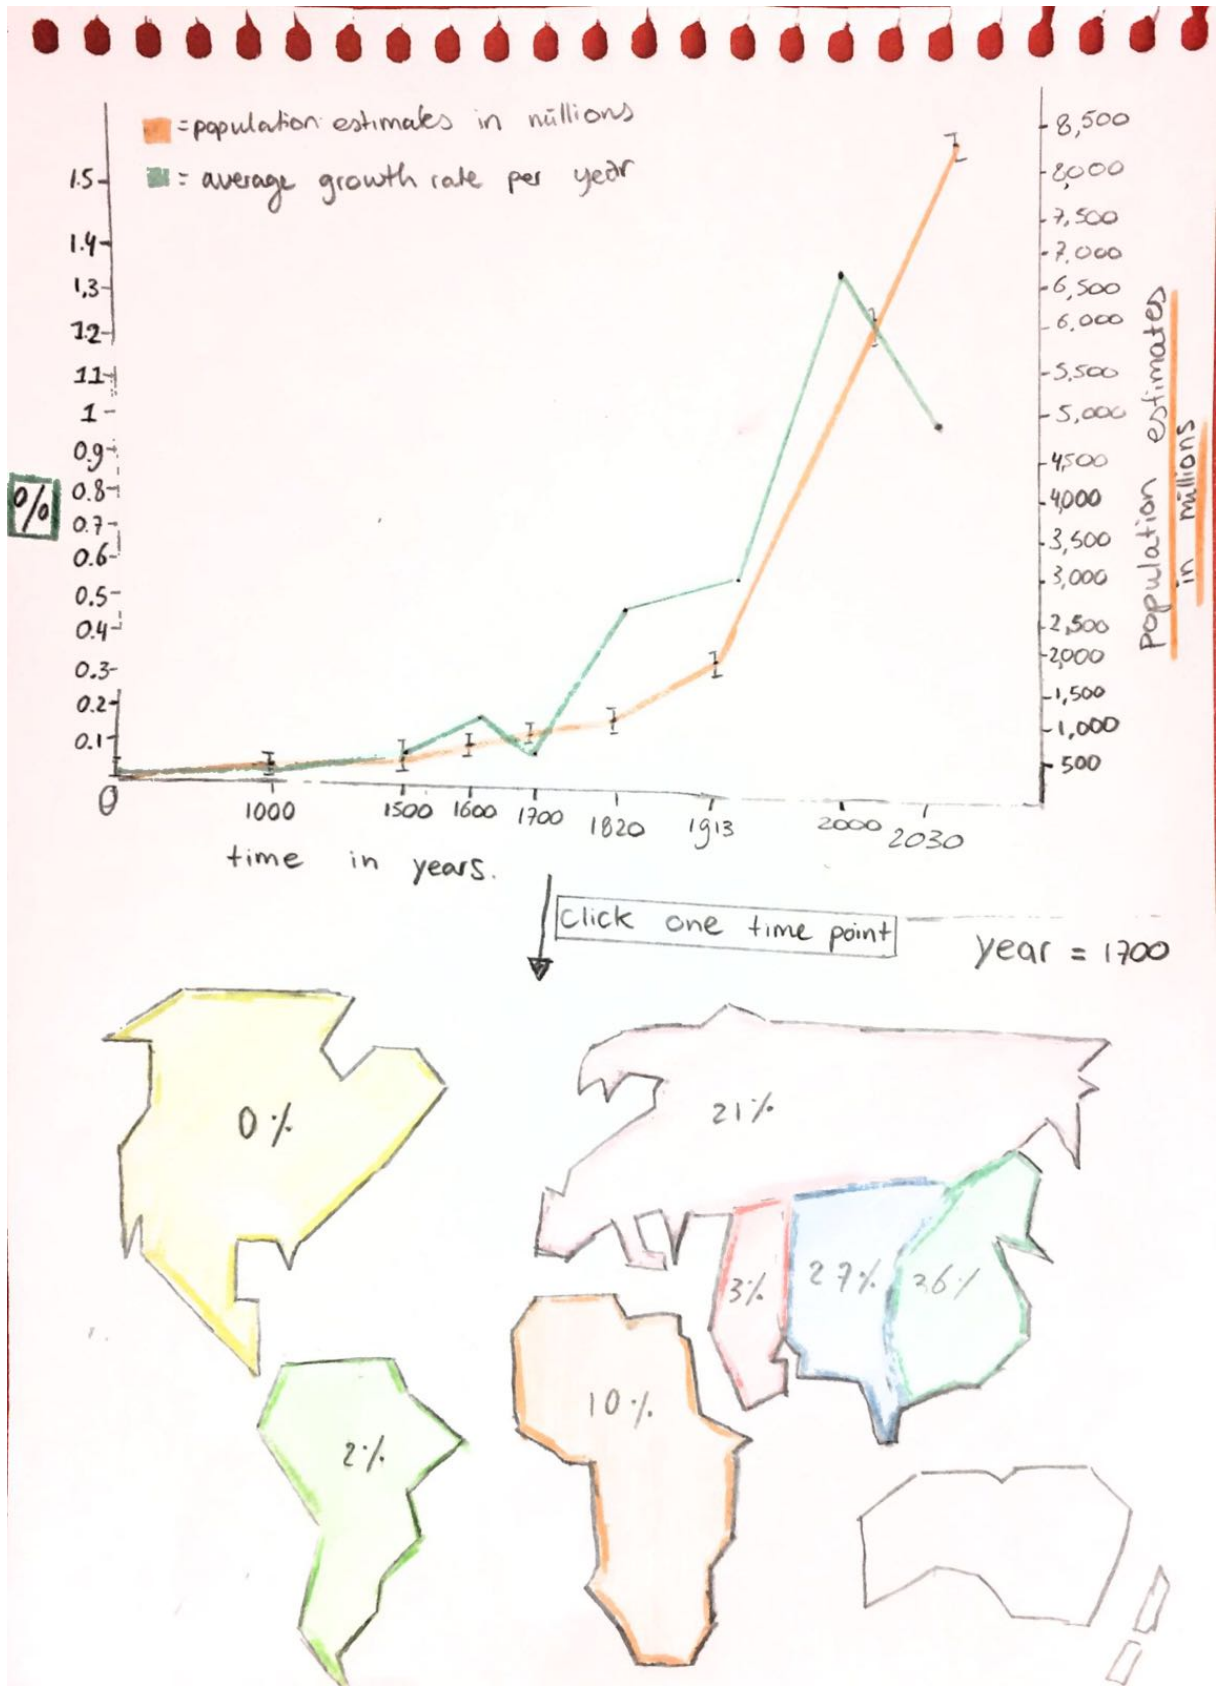 =population estimates in millions
= average growth rate per year
1.5
1.4
1,3
1.2
1.1
1
0.9
0.8
0.7
0.6
0.5
0.4
0.3
0.2
0.1
%
8,500
8,000
7,500
7,000
6,500
6,000
5,500
5,000
4,500
4,000
3,500
3,000
2,500
2,000
1,500
1,000
500
population estimates
in millions
0 1000 1500 1600 1700 1820 1913 2000 2030
time in years.
click one time point
year = 1700
0%
21%
3% 27% 26%
10%
2%